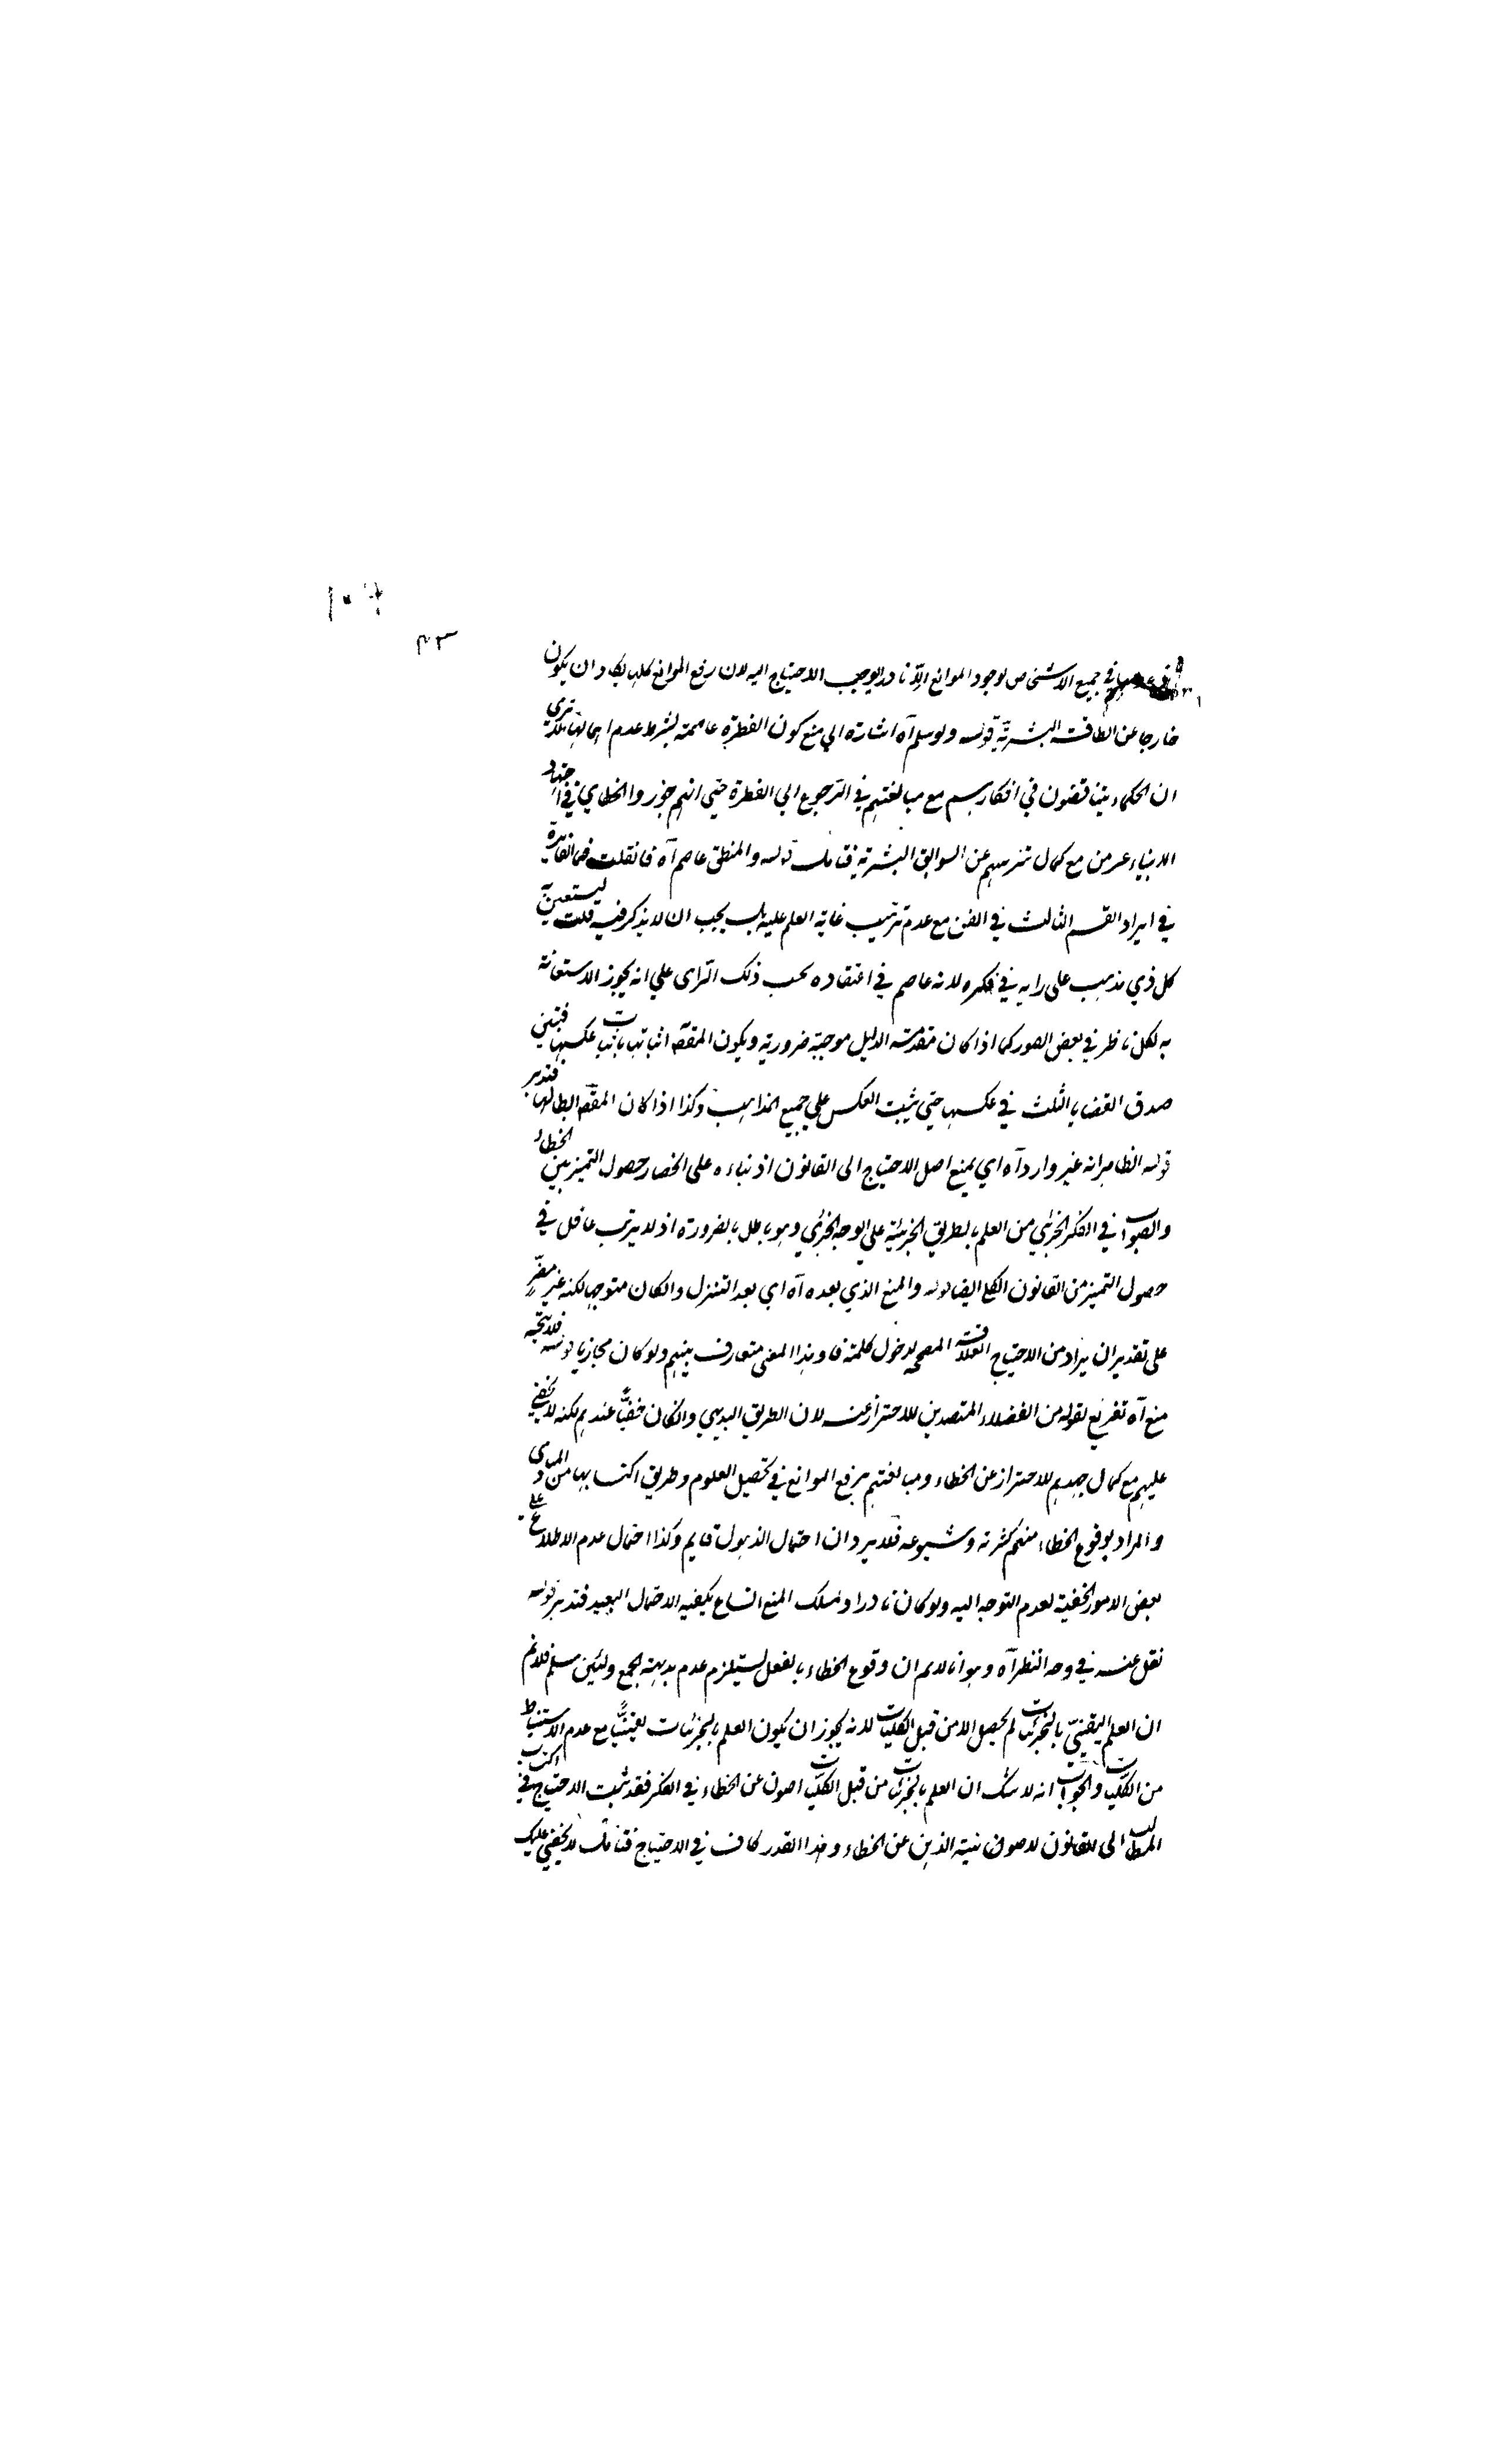 ٤٣
في جميع الاشخاص لوجود الموانع الّا نادرا يوجب الاحتياج اليه لان رفع الموانع كلها يكاد ان يكون
خارجا عن الطاقة البشرية قوله ولو سلم آه اشارة الى منع كون الفطرة عاصمة بشرط عدم ترى
ان الحكماء يتناقضون في افكارهم مع مبالغتهم في الرجوع الي الفطرة حتى انهم جوزوا الخطاء في اجتهاد
الانبياء مع كمال تنزههم عن البشرية فتامل قوله والمنطق عاصم آه فان قلت فما الفايدة
في ايراد القسم الثالث في الفن مع عدم ترتيب غاية العلم عليه بل يجب ان لا يذكر فيه قلت يستعين
كل ذي مذهب على رايه في فكره لانه عاصم في اعتقاده بحسب ذلك الراى علي انه يجوز الاستعانة
به لكل ناظر في بعض الصور كما اذا كان مقدمة الدليل موجبة ضرورية ويكون المقصّ اثباتها باثبات عكسها فيبتني
صدق القضايا الثلث في عكسها حتى يثبت العكس علي جميع المذاهب وكذا اذا كان المقصّ ابطالها فتدبر
قوله الظاهر انه غير وارد آه اي يمنع اصل الاحتياج الى القانون اذ بناءه على انحصار حصول التميز بين الخطاء
والصواب في الفكر الجزئي من العلم بالطريق الجزئية علي الوجه الجزئي وهو باطل بالضرورة اذ لا يرتب عاقل في
حصول التميز من القانون الكلي ايضا قوله والمنع الذي بعده آه اي بعد التنزل وان كان متوجها لكنه غير مضرّ
على تقدير ان يراد من الاحتياج العلاقة المصححة لدخول كلمة فا وهذا المعنى متعارف بينهم ولو كان مجازيا قوله فلا يتجه
منع آه تفريع لقوله من الفضلاء المتصدين للاحتراز عنه لان الطريق البديهي وان كان خفيّا عندهم لكنه لا يخفى
عليهم مع كمال جهدهم للاحتراز عن الخطاء ومبالغتهم برفع الموانع في تحصيل العلوم وطريق اكتسابها من المبادى
والمراد بوقوع الخطاء منهم كثرته وشيوعه فلا يرد ان احتمال الذهول قايم وكذا احتمال عدم الاطلاع على
بعض الامور الخفية لعدم التوجه اليه ولو كان نادرا ومسلك المنع اتساع يكفيه الاحتمال البعيد فتدبر قوله
نقل عنه في وجه النظر آه وهو انا لا نم ان وقوع الخطاء بالفعل يستلزم عدم بديهية الجميع ولئن سلم فلا نم
ان العلم اليقينيّ بالجزئيات لم يحصل الا من قبل الكليات لانه يجوز ان يكون العلم بالجزئيات يقينيّا مع عدم الاستنباط
من الكليات والجواب انه لا شك ان العلم بالجزئيات من قبل الكليات اصون عن الخطاء في الفكر فقد ثبت الاحتياج في اكتساب
المطالب الى القانون الذهن عن الخطاء وهذا القدر كاف في الاحتياج فتامل لا يخفى عليك